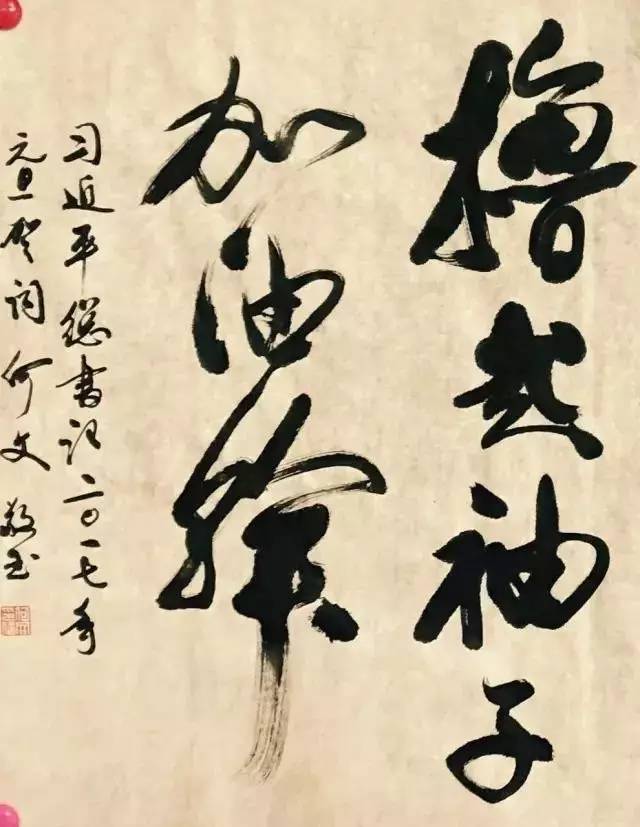 撸起袖子
加油干
习近平总书记二〇一七年
元旦贺词 何文 敬书